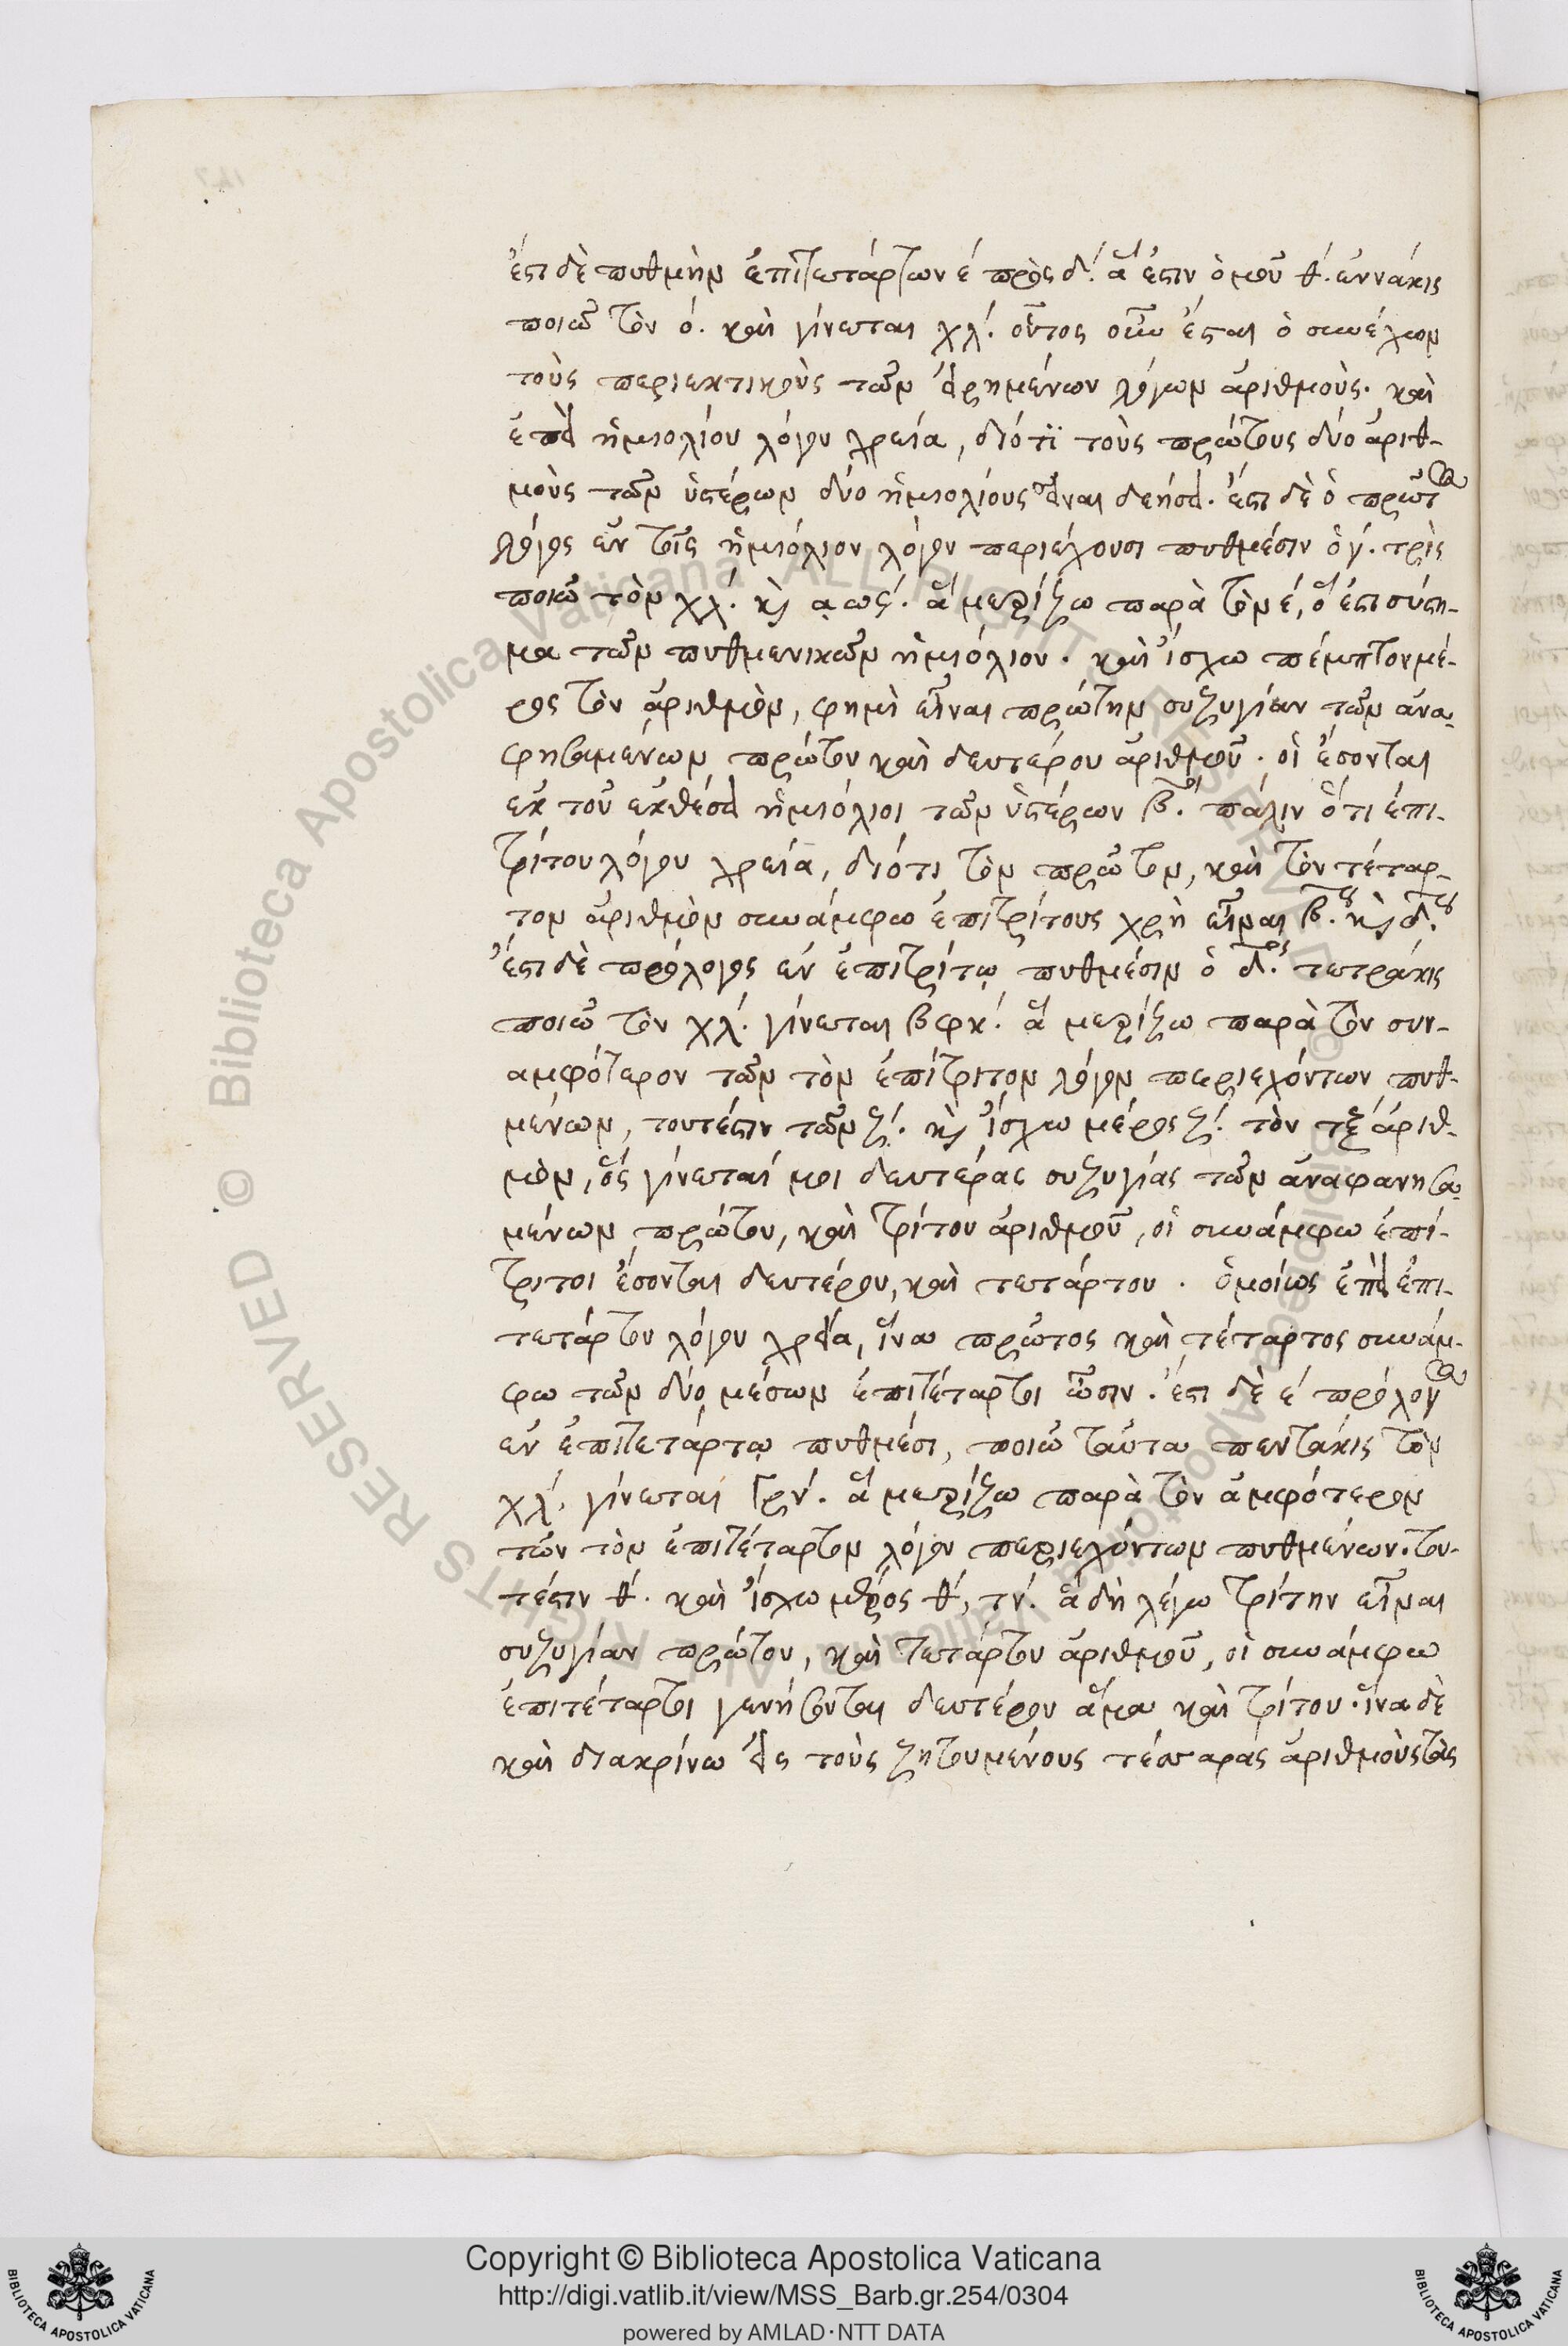 ἔστι δὲ πυθμὴν ἐπιτετάρτων ε΄ πρὸς δ΄. ἅ ἐστιν ὁμοῦ θ΄. ἐννάκις
ποιῶ τὸν ο΄. καὶ γίνεται χλ΄. οὗτος οὖν ἔσται ὁ συνέχων
τοὺς περιεκτικοὺς τῶν εἰρημένων λόγων ἀριθμοὺς. καὶ
ἐπεὶ ἡμιολίου λόγου χρεία, διότι τοὺς πρώτους δύο ἀριθ-
μοὺς τῶν ὑστέρων δύο ἡμιολίους εἶναι δεήσει. ἔστι δὲ ὁ πρῶτα
λόγος ἐν τοῖς ἡμιόλιον λόγον περιέχουσι πυθμέσιν ὁ γ΄. τρὶς
ποιῶ τὸν χλ΄. καὶ αωϟ΄. ἃ μερίζω παρὰ τὸν ε΄, ὅ ἐστι σύστη-
μα τῶν πυθμενικῶν ἡμιόλιον. καὶ ἴσχω πέμπτον μέ-
ρος τὸν ἀριθμὸν, φημὶ εἶναι πρώτην συζυγίαν τῶν ἀνα-
φησαμένων πρώτου καὶ δευτέρου ἀριθμοῦ. οἱ ἔσονται
ἐκ τοῦ ἐκθέσει ἡμιόλιοι τῶν ὑστέρων β΄. πάλιν ὅτι ἐπι-
τρίτου λόγου χρεία, διότι τὸν πρῶτον, καὶ τὸν τέταρ-
τον ἀριθμὸν συνάμφω ἐπιτρίτους χρὴ εἶναι β. καὶ δ.
ἔστι δὲ πρόλογος ἐν ἐπιτρίτῳ πυθμέσιν ὁ δ. τετράκις
ποιῶ τὸν χλ΄. γίνεται βφκ΄. ἃ μερίζω παρὰ τὸν συν-
αμφότερον τῶν τὸν ἐπίτριτον λόγον περιεχόντων πυθ-
μένων, τουτέστιν τῶν ζ΄. καὶ ἴσχω μέρος ζ΄. τὸν τξ ἀριθ-
μὸν, ὅς γίνεταί μοι δευτέρας συζυγίας τῶν ἀναφανησα-
μένων πρώτου, καὶ τρίτου ἀριθμοῦ, οἱ συνάμφω ἐπί-
τριτοι ἔσονται δευτέρου, καὶ τετάρτου. ὁμοίως ἐπεὶ ἐπι-
τετάρτου λόγου χρεία, ἵνα πρῶτος καὶ τέταρτος συνάμ-
φω τῶν δύο μέσων ἐπιτέταρτοι ὦσιν. ἔστι δὲ ε΄ πρόλογα
ἐν ἐπιτετάρτῳ πυθμέσι, ποιῶ ταῦτα πεντάκις τὸν
χλ΄. γίνεται Γρν΄. ἃ μερίζω παρὰ τὸν ἀμφότερον
τῶν τὸν ἐπιτέταρτον λόγον περιεχόντων πυθμένων. του-
τέστιν θ΄. καὶ ἴσχω μέρος θ΄, τν΄. ἃ δὴ λέγω τρίτην εἶναι
συζυγίαν πρώτου, καὶ τετάρτου ἀριθμοῦ, οἱ συνάμφω
ἐπιτέταρτοι γενήσονται δευτέρου ἅμα καὶ τρίτου. ἵνα δὲ
καὶ διακρίνω εἰς τοὺς ζητουμένους τέσσαρας ἀριθμοὺς τὰς
Copyright © Biblioteca Apostolica Vaticana
http://digi.vatlib.it/view/MSS_Barb.gr.254/0304
powered by AMLAD·NTT DATA